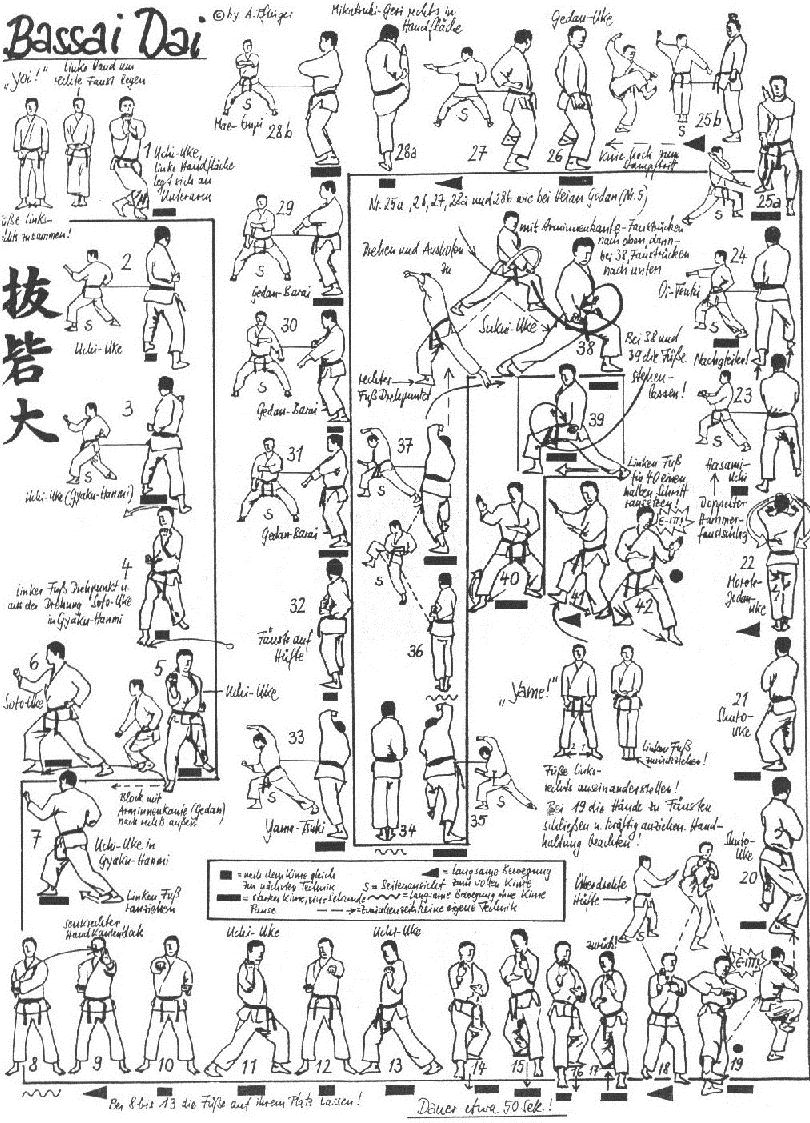 Bassai Dai
© by A. Pflüger
„Yoi!"
linke Hand um
rechte Faust legen
1 Uchi-Uke,
linke Handfläche
legt sich an
Unterarm
Füße links-
rechts zusammen!
抜
砦
大
2
S
Uchi-Uke
3
S
Uchi-Uke (Gyaku-Hanmi)
4
Linker Fuß Drehpunkt u.
aus der Drehung Soto-Uke
in Gyaku-Hanmi
6
5
Soto-Uke
Uchi-Uke
Block mit
Arminnenkante (Gedan)
nach rechts außen
7
Uchi-Uke in
Gyaku-Hanmi
Linken Fuß
heranziehen
senkrechter
Handkantenblock
8
9
10
Uchi-Uke
11
12
Uchi-Uke
13
14
15
16
zurück!
17
18
19
E-iii
Bei 8 bis 13 die Füße auf ihrem Platz lassen!
Dauer etwa 50 Sek.!
Überdrehte
Hüfte
S
Shuto-
Uke
20
21
Shuto-
Uke
22
Morote-
Jodan-
Uke
Doppelter
Hammer-
faustschlag
Hasami-
Uchi
23
S
Nachgleiten!
24
Oi-Tsuki
S
25a
S
25b
S
Knie hoch zum
Stampftritt
Gedan-Uke
26
27
S
Mikazuki-Geri rechts in
Handfläche
28a
28b
S
Mae-Empi
29
S
Gedan-Barai
30
S
Gedan-Barai
31
S
Gedan-Barai
32
Fäuste auf
Hüfte
33
S
Yama-Tsuki
34
35
S
36
S
37
S
Nr. 25a, 26, 27, 28a und 28b wie bei Heian Godan (Nr. 5)
Drehen und Ausholen
zu
rechter
Fuß Drehpunkt
mit Arminnenkante-Faustrücken
nach oben, dann
bei 38 Faustrücken
nach unten
Sukui-Uke
38
Bei 38 und
39 die Füße
stehen-
lassen!
39
Linken Fuß
für 40 einen
halben Schritt
heransetzen!
40
41
E-iii
42
„Yame!"
Linken Fuß
zurückziehen!
Füße links-
rechts auseinanderstellen!
Bei 19 die Hände zu Fäusten
schließen u. kräftig anziehen. Hand-
haltung beachten!
= nach dem Kime gleich
zur nächsten Technik
= starkes Kime, eine Sekunde
Pause
= langsame Bewegung
zum vollen Kime
S = Seitenansicht
= langsame Bewegung ohne Kime
= Zwischentechnik, keine eigene Technik